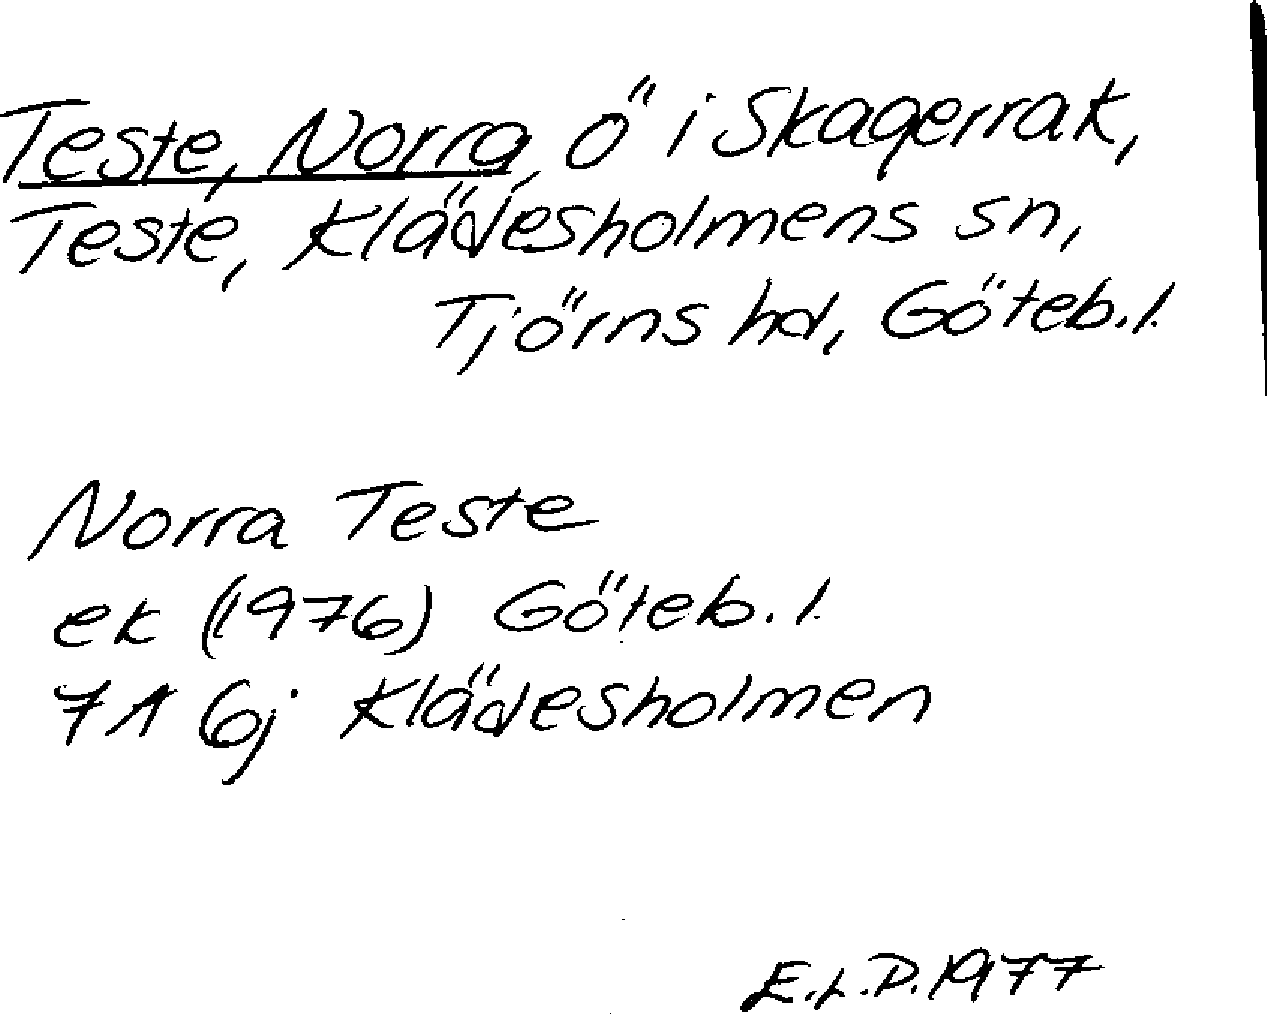 Teste, Norra, ö i Skagerrak,
Teste, Klädesholmens sn,
Tjörns hd, Göteb. l.
Norra Teste
ek (1976) Göteb. l.
7A 6j Klädesholmen
E.L.D. 1977